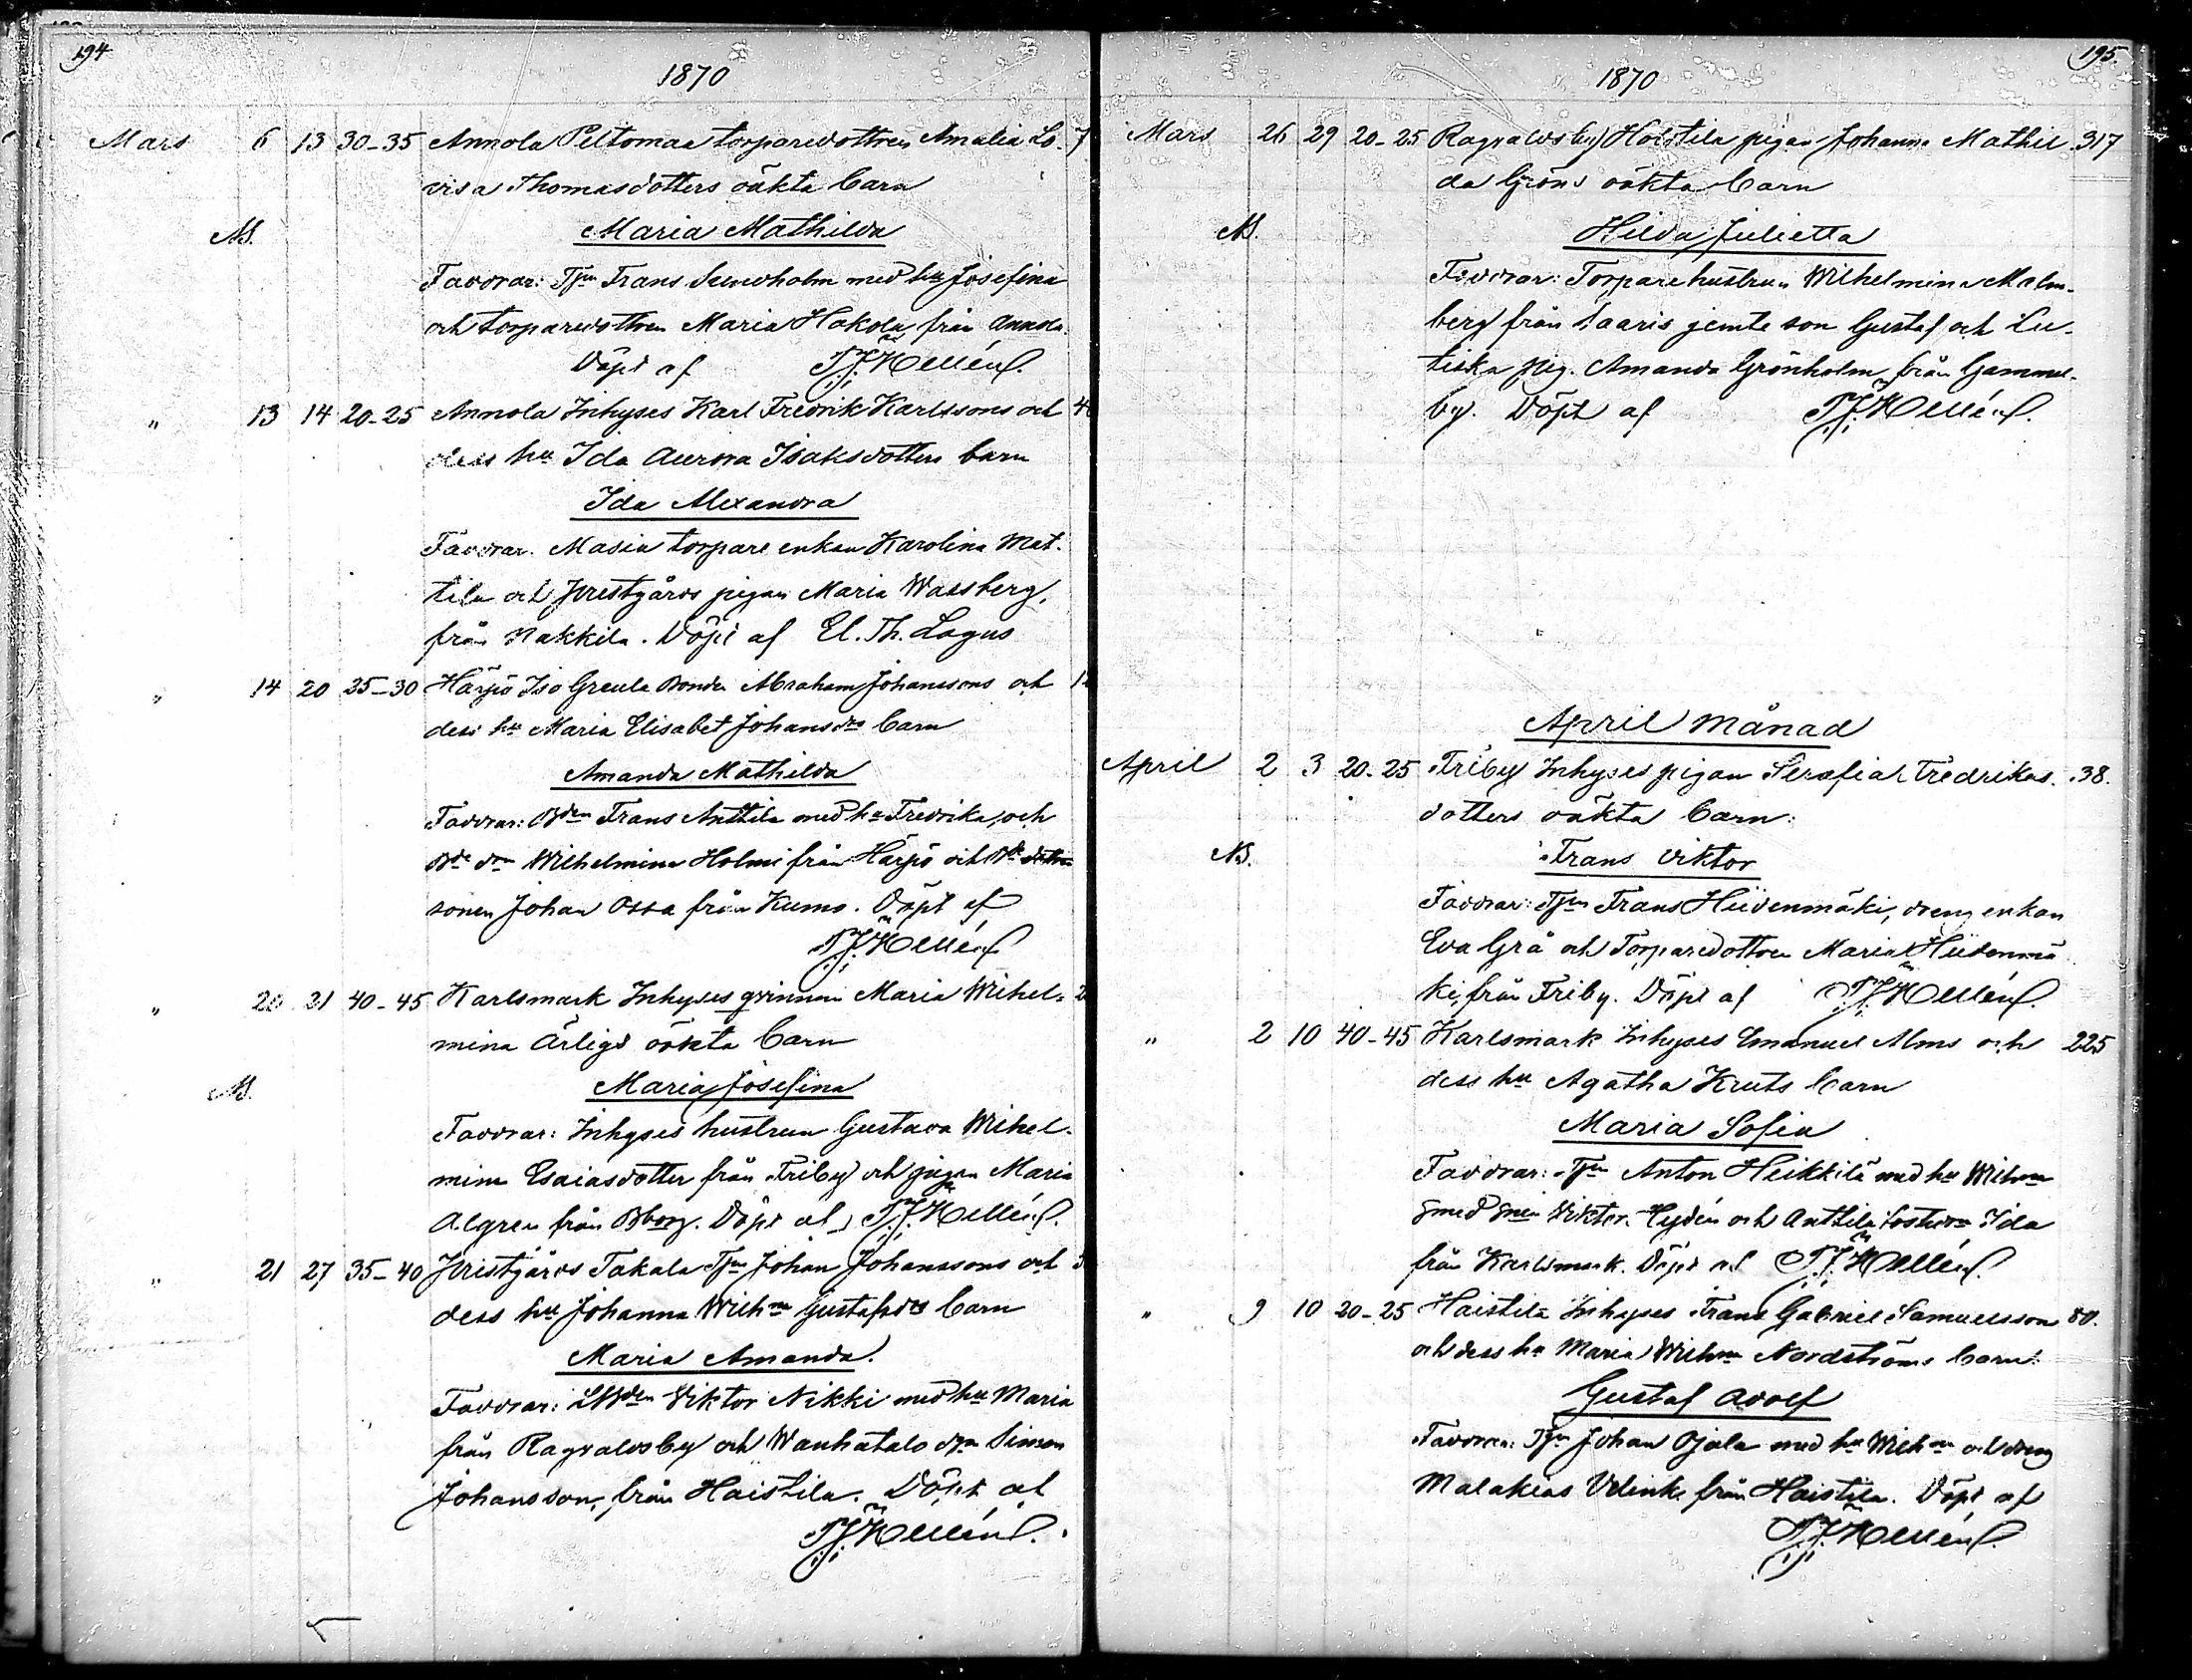 194
1870
Mars 6 13 30-35 Annola Peltomaa torparedottren Amalia Lo- 7
visa Thomasdotters oäkta barn
NB. Maria Mathilda
Faddrar: Tjn Frans Sundholm med hu Josefina
och torparedottren Maria Hakola från Annola.
Döpt af T.J. Hellén.
" 13 14 20-25 Annola Inhyses Karl Fredrik Karlssons och 4
dess hu Ida Aurora Isaksdotters barn
Ida Alexandra
Faddrar. Masia torpare enkan Karolina Mat-
tila och Prestgårds pigan Maria Wassberg,
från Nakkila. Döpt af El. Th. Lagus
" 14 20 25-30 Harjo Iso Greula Bonden Abraham Johanssons och 1
dess hu Maria Elisabet Johansdrs barn
Amanda Mathilda
Faddrar: Bden Frans Anttila med hu Fredrika, och
Bde drn Wilhelmina Holmi från Harjo och
sonen Johan Ossa från Kumo. Döpt af
T.J. Hellén
" 20 21 40-45 Karlsmark Inhyses qvinnan Maria Wilhel- 2
mina Ärligs oäkta barn
NB. Maria Josefina
Faddrar: Inhyses hustrun Gustava Wilhel-
mina Esaiasdotter från Friby och pigan Maria
Algren från Bborg. Döpt af T.J. Hellén.
" 21 27 35-40 Prestgårds Takala Tjn Johan Johanssons och 3
dess hu Johanna Wilhna Gustafsdrs barn
Maria Amanda.
Faddrar: Viktor Nikki med hu Maria
från Ragvaldsby och Wanhatalo Simon
Johansson, från Haistila. Döpt af
T.J. Hellén.
195.
1870
Mars 26 29 20-25 Ragvaldsby Hoistila pigan Johanna Mathil- 317
da Gröns oäkta barn
NB. Hilda Julietta
Faddrar: Torpare hustrun Wilhelmina Malm-
berg från Saaris jemte son Gustaf och Lu-
tiska pig. Amanda Grönholm från Gammel-
by. Döpt af T.J. Hellén.
April Månad
April 2 3 20-25 Friby Inhyses pigan Serafia Fredrikas- 38.
dotters oäkta barn:
NB. Frans Viktor
Faddrar: Tjn Frans Hiidenmäki, dreng enkan
Eva Grå och Torparedottren Maria Hiidenmä
ki, från Friby. Döpt af T.J. Hellén.
" 2 10 40-45 Karlsmark Inhyses Emanuel Alms och 225
dess hu Agatha Kruts barn
Maria Sofia
Faddrar: Tjn Anton Heikkilä med hu Wilhna
Smed Viktor Hydén och Anttila Ida
från Karlsmark. Döpt af T.J. Hellén.
" 9 10 20-25 Haistila Inhyses Frans Gabriel Samuelsson 80.
och dess hu Maria Wilhna Nordströms barn:
Gustaf Adolf
Faddrar: Tjn Johan Ojala med hu Wilhna och dreng
Malakias Velink från Haistila. Döpt af
T.J. Hellén.